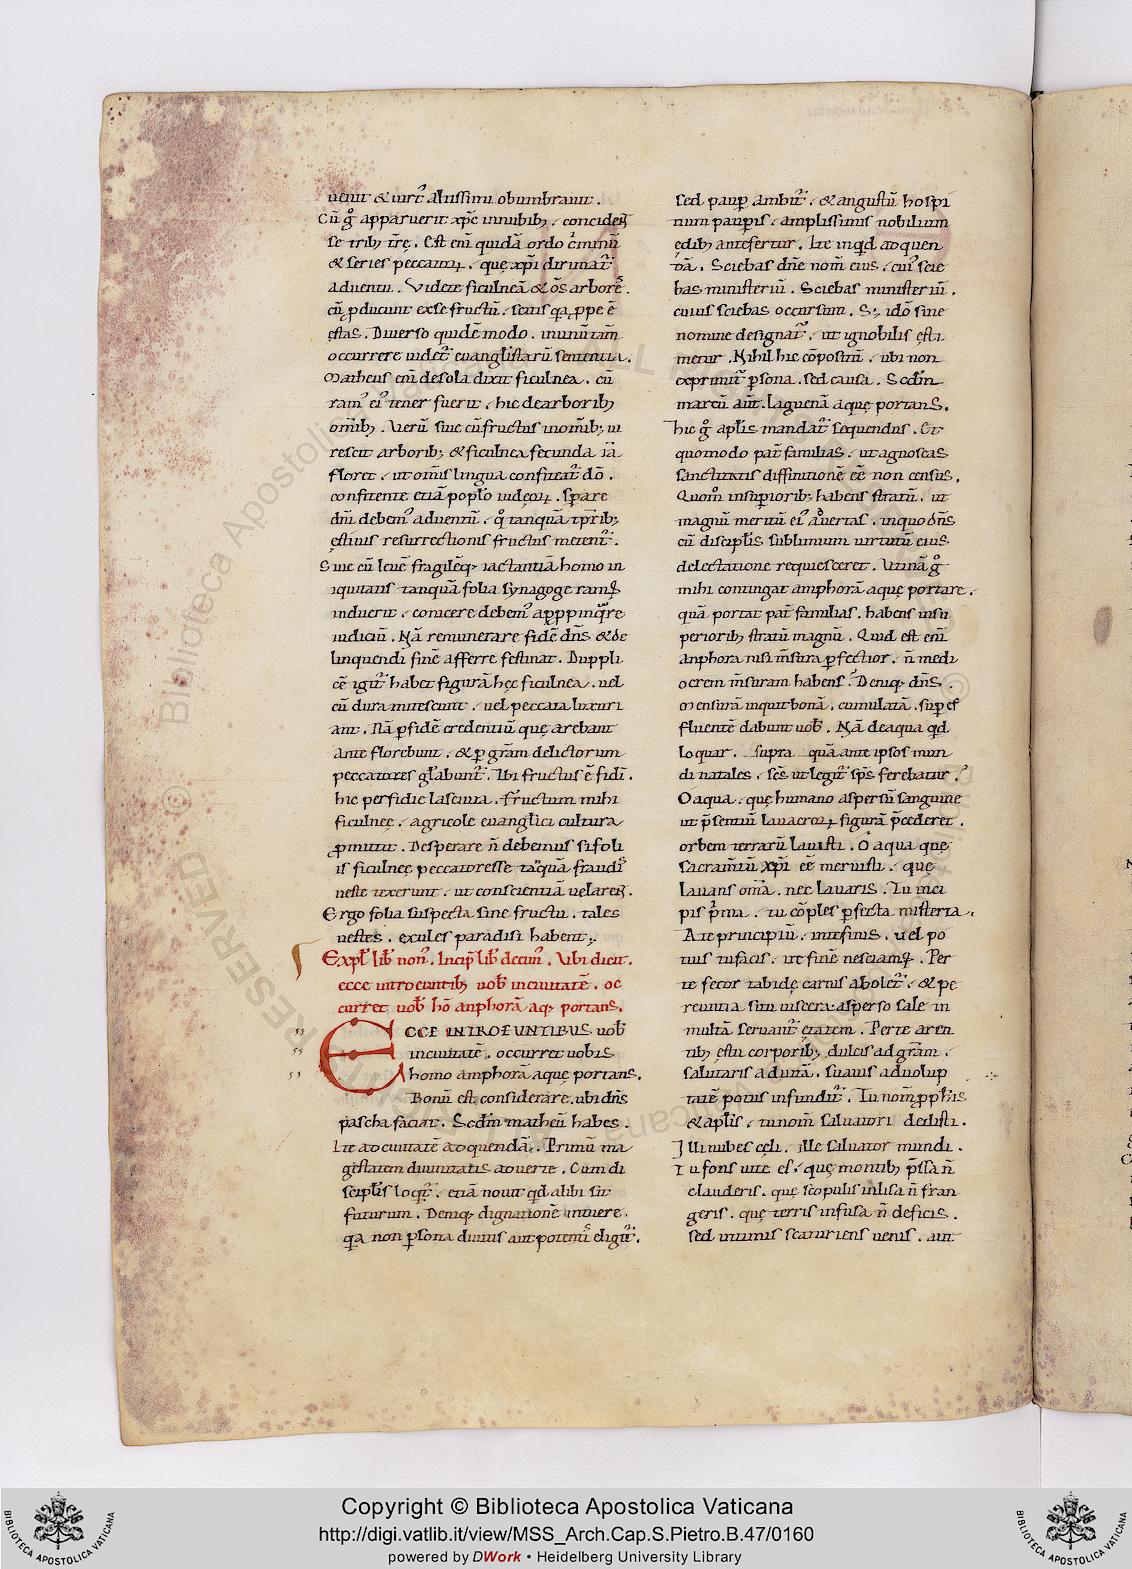 uenit & uirt᷒ altissimi obumbrauit.
Cū g̊ apparuerit xp̄c innubib; . concident
se trib; tr̄ę. Est eni᷒ quidā ordo c̓minū
& series peccatoꝝ. quę xp̄i dirimat᷒
aduentu. Videte ficulneā & om̄s arbores.
cū ꝓducunt exse fructū. scitis qa ꝓpe ē
ęstas. Diuerso quidē modo. inunū tam̄
occurrere uident᷒ euangl̄istarū sententia.
Matheus eni᷒ desola dixit ficulnea. cū
ram᷒ ei᷒ tener fuerit. hic dearborib;
om̄ib; . Verū siue cū fructus inom̄ib; ui
rescit arborib; & ficulnea fecunda iā
floret. ut om̄is lingua confiteat᷒ dō.
confitente etiā poplo iudęoꝝ. sperare
dn̄i debem᷒ aduentū. q̊ tanquā tp̄rib;
ęstiuis resurrectionis fructus metent᷒.
Siue cū leuē fragilēq; iactantiā homo in
iquitatis tanquā folia synagoge ramis
induerit. conicere debem᷒ appropinquare
iudiciū. Nā remunerare fidē dn̄s & de
linquendi finē afferre festinat. Duppli
cē igit᷒ habet figurā hęc ficulnea. uel
cū dura mitescunt. uel peccata luxuri
ant. Nā ꝑ fidē credentiū quę arebant
ante florebunt. & ꝑ gr̄am delictorum
peccatores gl̄abunt᷒. Vbi fructus ē fidei.
hic perfidie lasciuia. Fructum mihi
ficulneę. agricole euangl̄ici cultura
ꝓmittit. Desperare n̄ debemus si foli
is ficulneę peccatores se tanquā fraudis
ueste texerunt. ut conscientiā uelarent.
Ergo folia suspecta sine fructu. tales
uestes. exules paradisi habent;.
Expl̄ lib̄ non᷒. Incip̄ lib̄ decim᷒. Vbi dicit.
ecce introeuntib; uob̄ inciuitatē. oc
curret uob̄ hō anphorā aq; portans.
ECCE INTROEUNTIBUS uob̄
inciuitatē. occurret uobis
homo amphorā aque portans.
Bonū est considerare. ubi dn̄s
pascha faciat. Scd̄m matheū habes.
Ite ad ciuitatē ad quendā. Primū ma
gestatem diuinitatis aduerte. Cum di
scipl̄is loquit᷒. etiā nouit qd alibi sit
futurum. Deniq; dignationē intuere.
qa non ꝑsona diuitis aut potentis eligit᷒.
sed pauꝑ ambit᷒. & angustū hospi
tium pauperis. amplissimis nobilium
ędib; antefertur. Ite inqd ad quen
dā. Sciebas dn̄e nom̄ eius. cui᷒ scie
bas ministeriū. Sciebas ministeriū.
cuius sciebas occursum. S; idō sine
nomine designat᷒. ut ignobilis ęsti
metur. Nihil hic cōpositū. ubi non
exprimit᷒ ꝑsona. sed causa. Scd̄m
marcū aūt. laguenā aquę portans.
Hic g̊ apl̄is mandat᷒ sequendus. Et
quomodo pat᷒ familias. ut agnoscas
sanctitatis diffinitionē eē non census.
Quom̄ insuperiorib; habens stratū. ut
magnū meritū ei᷒ aduertas. inquo dn̄s
cū discipl̄is sublimium uirtutū eius
delectatione requiesceret. Vtinā g̊
mihi contingat amphorā aquę portare.
quā portat pat᷒ familias. habens insu
periorib; stratū magnū. Quid est eni᷒
anphora nisi m̄sura ꝑfectior. n̄ medi
ocrem m̄suram habens? Deniq; dn̄s.
Mensurā inquit bonā. cumulatā. supef
fluentē dabunt uob̄. Nā deaqua qd
loquar. supra quā ante ipsos mun
di natales. sc̄s ut legit᷒ sp̄s ferebatur?
O aqua. quę humano aspersū sanguine
ut p̄sentiū lauacroꝝ figurā p̄cederet.
orbem terrarū lauisti. O aqua quę
sacram̄tū xp̄i eē meruisti. quę
lauans om̄a. nec lauaris. Tu inci
pis p̄ma. tu cōples ꝑfecta misteria.
A te principiū. inte finis. uel po
tius tu facis. ut finē nesciamus. Per
te fecor tabidę carnis abolet᷒. & pe
reuntia situ uiscera: asperso sale in
multā seruant᷒ ętatem. Per te aren
tib; ęstu corporib; dulcis ad gr̄am.
salutaris ad uitā. suauis aduolup
tatē potus infundit᷒. Tu nom̄ ꝓph̄is
& apl̄is. tu nom̄ saluatori dedisti.
Illi nubes cęli. ille saluator mundi.
Tu fons uitę es. quę montib; p̄ssa n̄
clauderis. quę scopulis inlisa n̄ fran
geris. quę terris infusa n̄ deficis.
sed intimis scaturiens uenis. aut
Copyright © Biblioteca Apostolica Vaticana
http://digi.vatlib.it/view/MSS_Arch.Cap.S.Pietro.B.47/0160
powered by DWork • Heidelberg University Library